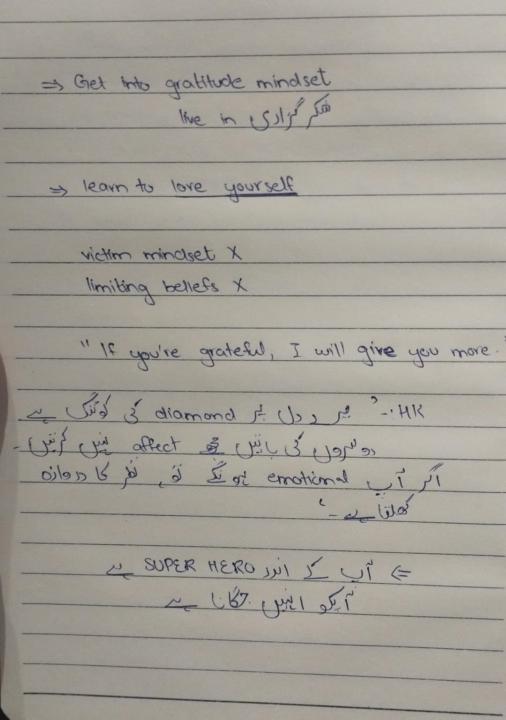 ⇒ Get into gratitude mindset
live in شکر گزاری
⇒ learn to love yourself
victim mindset X
limiting beliefs X
"If you're grateful, I will give you more."
HK:- ' دل پر diamond کی کوٹنگ ہے
دوسروں کی باتیں affect نہیں کرتیں -
اگر آپ emotional ہونگے تو، کا دروازہ
کھلتا ہے - '
⇐ آپ کے اندر SUPER HERO ہے
آپکو انہیں جگانا ہے